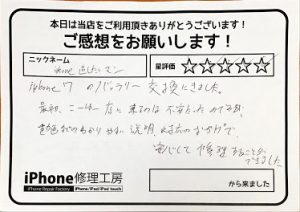 本日は当店をご利用頂きありがとうございます!
ご感想をお願いします!
ニックネーム
星評価 ☆☆☆☆☆
iphone 7 のバッテリー 交換にきました。
最初、ここに来るのは不安だったのですが、
説明
安心して 修理 することが
できました
iPhone修理工房
iPhone Repair Factory
iPhone/iPad/iPod touch
から来ました